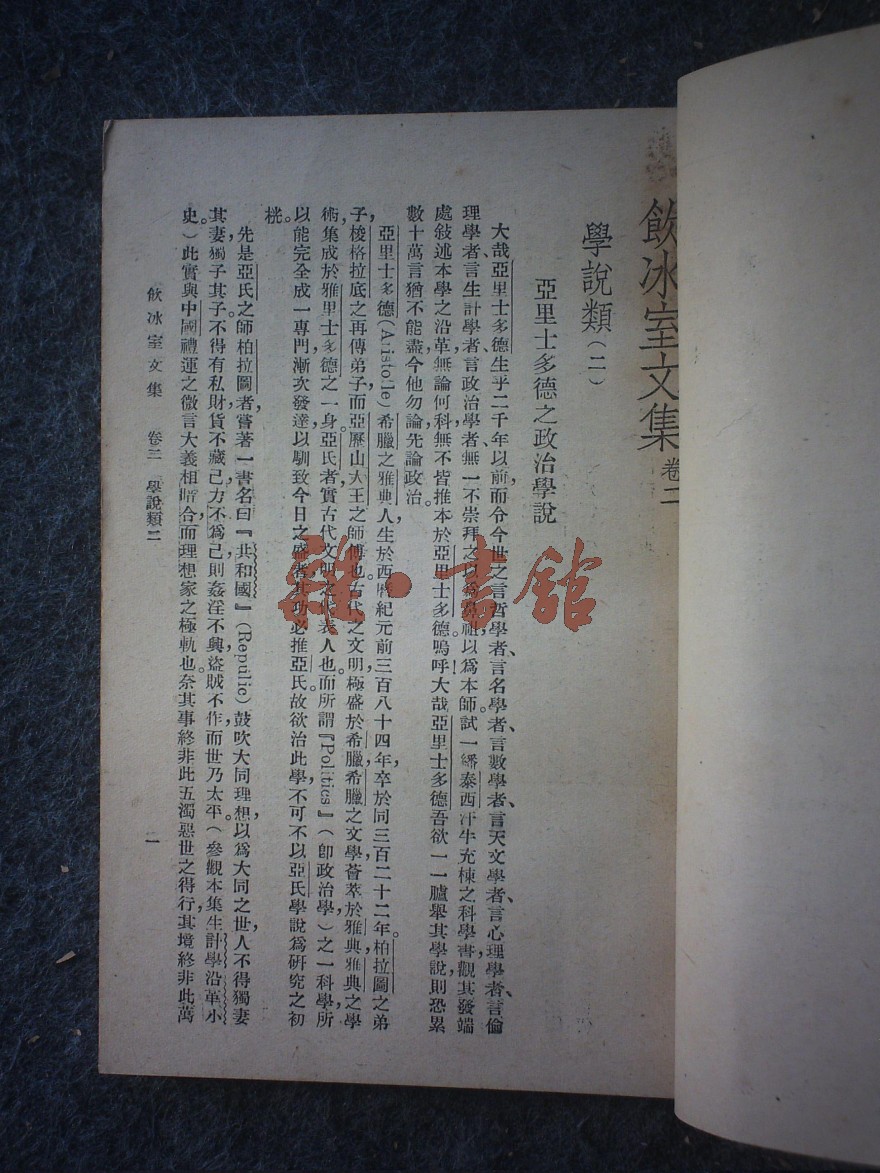 飲冰室文集 卷二
學說類(二)
亞里士多德之政治學說
大哉亞里士多德生乎二千年以前,而令今世之言哲學者、言名學者、言數學者、言天文學者、言心理學者、言倫
理學者、言生計學者、言政治學者、無一不崇拜之以爲鼻祖以爲本師。試一繙泰西汗牛充棟之科學書,觀其發端
處敍述本學之沿革,無論何科,無不皆推本於亞里士多德。嗚呼!大哉亞里士多德,吾欲一一臚舉其學說,則恐累
數十萬言猶不能盡,今他勿論,先論政治。
亞里士多德(Aristotle)希臘之雅典人,生於西曆紀元前三百八十四年,卒於同三百二十二年。柏拉圖之弟
子,梭格拉底之再傳弟子,而亞歷山大王之師傅也。古代之文明,極盛於希臘,希臘之文學,薈萃於雅典,雅典之學
術,集成於雅里士多德之一身,亞氏者實古代文明之代表人也。而所謂『Politics』(卽政治學)之一科學,所
以能完全成一專門,漸次發達,以馴致今日之盛者,其功必推亞氏。故欲治此學,不可不以亞氏學說爲研究之初
桄。
先是亞氏之師柏拉圖者,嘗著一書,名曰『共和國』(Repulic)鼓吹大同理想,以爲大同之世,人不得獨妻
其妻,獨子其子,不得有私財,貨不藏己,力不爲己,則姦淫不興,盜賊不作,而世乃太平。(參觀本集生計學沿革小
史。)此實與中國禮運之微言大義相脗合,而理想家之極軌也。奈其事終非此五濁惡世之得行,其境終非此萬
飲冰室文集 卷三 學說類二 一
雜·書館